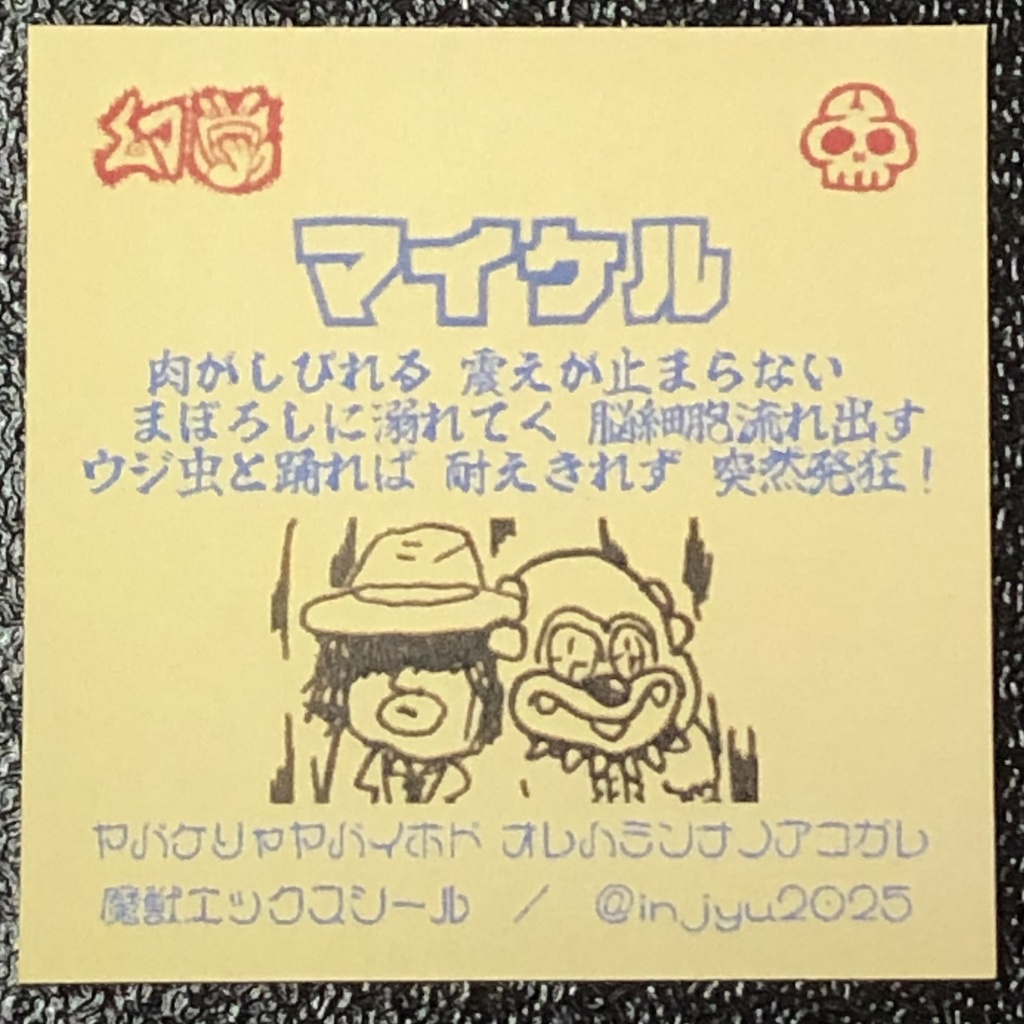 幻覚
マイケル
肉がしびれる 震えが止まらない
まぼろしに溺れてく 脳細胞流れ出す
ウジ虫と踊れば 耐えきれず 突然発狂!
ヤバケリャヤバイホド オレハミンナノアコガレ
魔獣エックスシール / @injyu2025